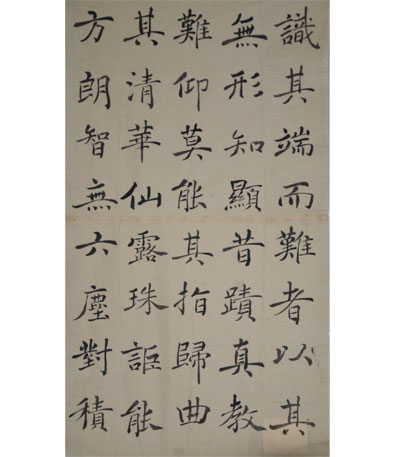 識其端而難者以其
無形知顯昔蹟真教
難仰莫能其指歸曲
其清華仙露珠詎能
方朗智無六塵對積